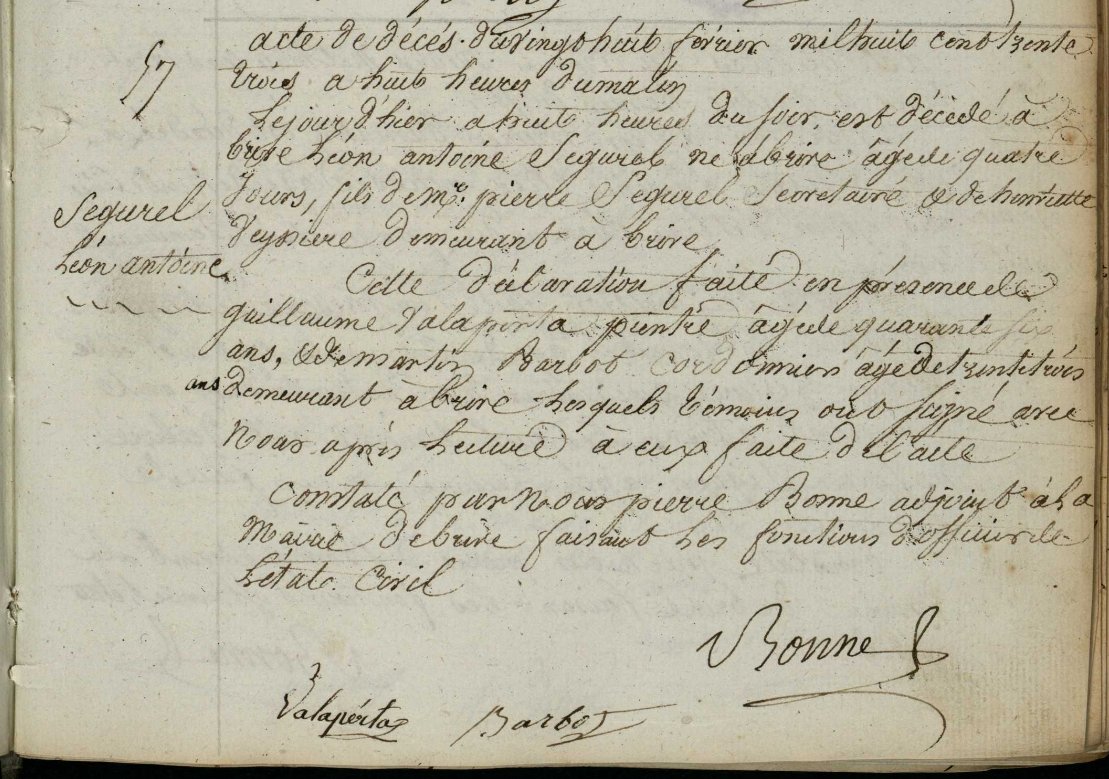 57
Segurel
Léon antoine
acte de décés. du vingt huit février mil huit cent trente
trois a huit heures du matin
Le jour d'hier a huit heures du soir est décédé à
brive Léon antoine Segurel né à brive âgé de quatre
jours, fils de mr. pierre Segurel Secretaire & de henriette
demeurant à brive
Cette déclaration faite en présence de
guillaume Valaperta peintre âgé de quarante six
ans, & de martin Barbot cordonnier âgé de trente trois
ans demeurant a brive Lesquels témoins ont signé avec
Nous après Lecture à eux faite de l'acte
Constaté par Nous pierre Bonne adjoint à La
Mairie de brive faisant Les fonctions d'officier de
L'état Civil
Bonne
Valaperta Barbot